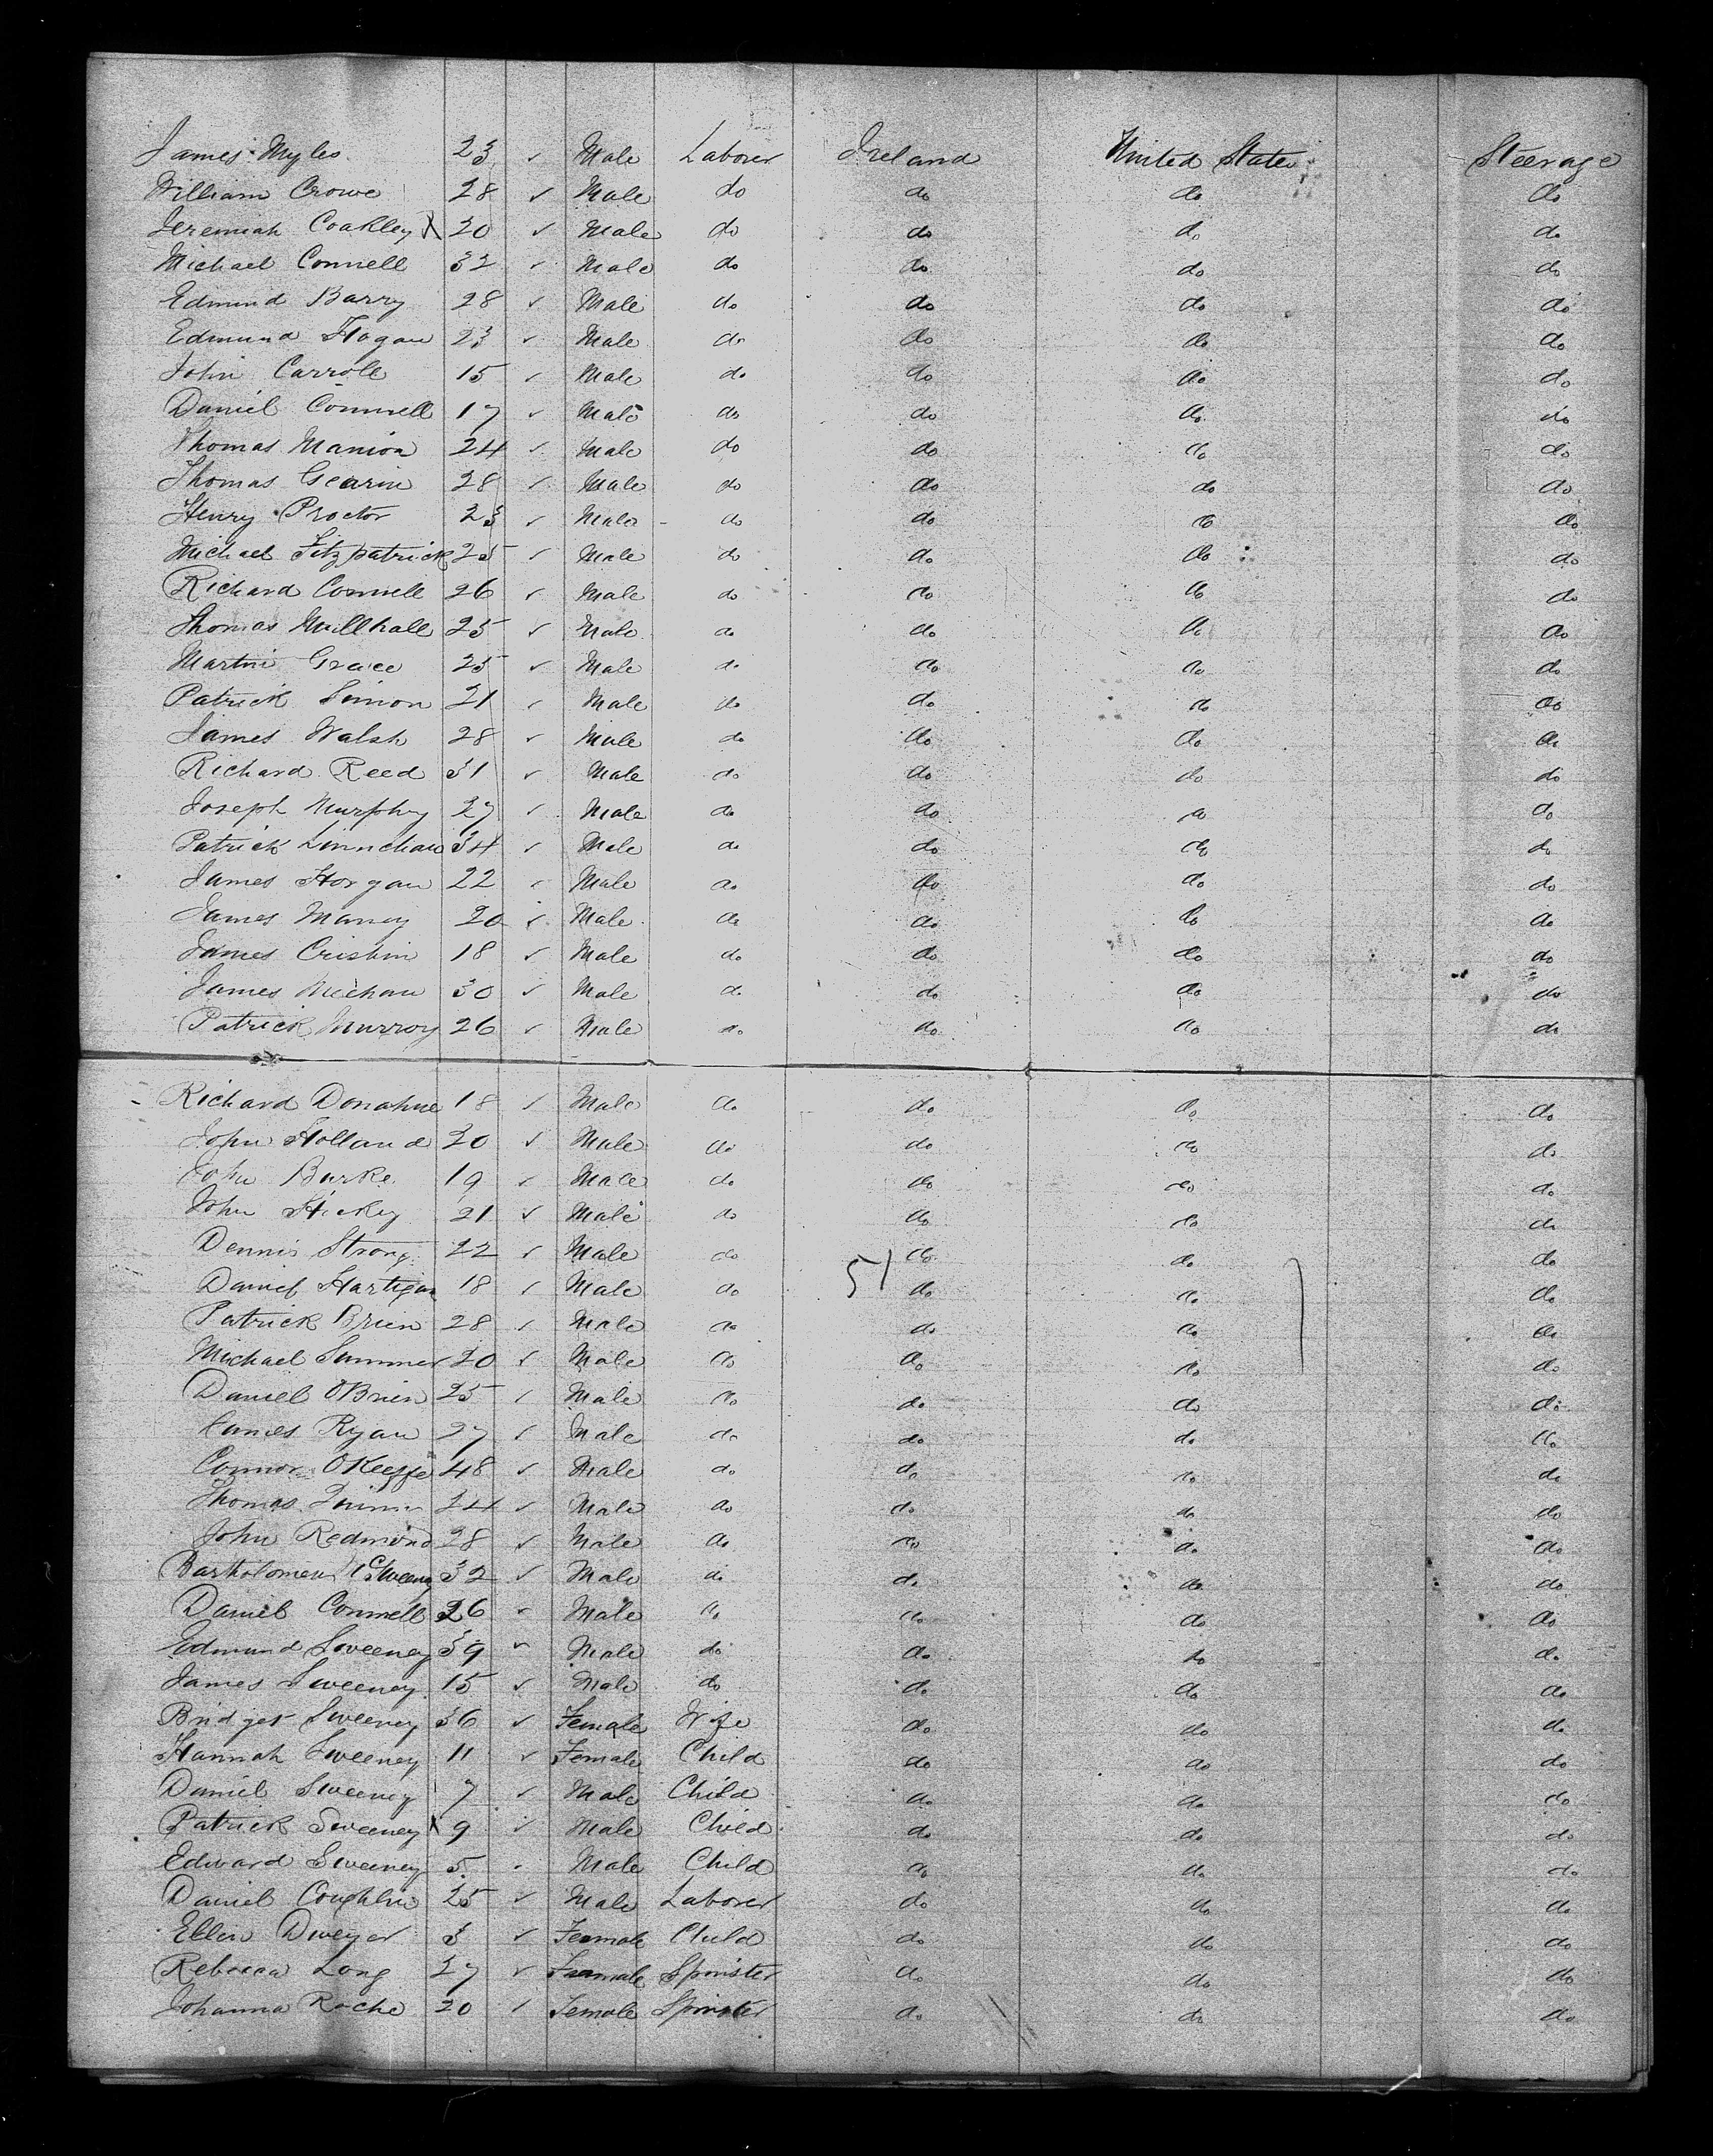 James Myles 23 ✓ Male Laborer Ireland United States Steerage
William Crowe 28 ✓ Male do do do do
Jeremiah Coakley X 20 ✓ Male do do do do
Michael Connell 32 ✓ Male do do do do
Edmund Barry 28 ✓ Male do do do do
Edmund Hogan 23 ✓ Male do do do do
John Carroll 15 ✓ Male do do do do
Daniel Connell 17 ✓ Male do do do do
Thomas Manion 24 ✓ Male do do do do
Thomas Gearin 28 ✓ Male do do do do
Henry Proctor 23 ✓ Male do do do do
Michael Fitzpatrick 25 ✓ Male do do do do
Richard Connell 26 ✓ Male do do do do
Thomas Mullhall 25 ✓ Male do do do do
Martin Grace 25 ✓ Male do do do do
Patrick 21 ✓ Male do do do do
James Walsh 28 ✓ Male do do do do
Richard Reed 31 ✓ Male do do do do
Joseph Murphy 27 ✓ Male do do do do
Patrick Linnehan 34 ✓ Male do do do do
James Horgan 22 ✓ Male do do do do
James Maney 20 ✓ Male do do do do
James 18 ✓ Male do do do do
James Meehan 30 ✓ Male do do do do
Patrick Murroy 26 ✓ Male do do do do
Richard Donahue 18 ✓ Male do do do do
John Holland 20 ✓ Male do do do do
John Burke 19 ✓ Male do do do do
John Hickey 21 ✓ Male do do do do
Dennis Strong 22 ✓ Male do do do do
Daniel Hartigan 18 ✓ Male do 51 do do do
Patrick Brien 28 ✓ Male do do do do
Michael Summer 20 ✓ Male do do do do
Daniel OBrien 25 ✓ Male do do do do
James Ryan 27 ✓ Male do do do do
Connor OKeeffe 48 ✓ Male do do do do
Thomas 24 ✓ Male do do do do
John Redmond 28 ✓ Male do do do do
Bartholomew McSweeny 32 ✓ Male do do do do
Daniel Connell 26 ✓ Male do do do do
Edmund Sweeney 39 ✓ Male do do do do
James Sweeney 15 ✓ Male do do do do
Bridget Sweeney 36 ✓ Female Wife do do do
Hannah Sweeney 11 ✓ Female Child do do do
Daniel Sweeney 7 ✓ Male Child do do do
Patrick Sweeney X 9 ✓ Male Child do do do
Edward Sweeney 5 ✓ Male Child do do do
Daniel Coughlin 25 ✓ Male Laborer do do do
Ellen Dwyer 3 ✓ Female Child do do do
Rebecca Long 27 ✓ Female Spinster do do do
Johanna Roche 20 ✓ Female Spinster do do do